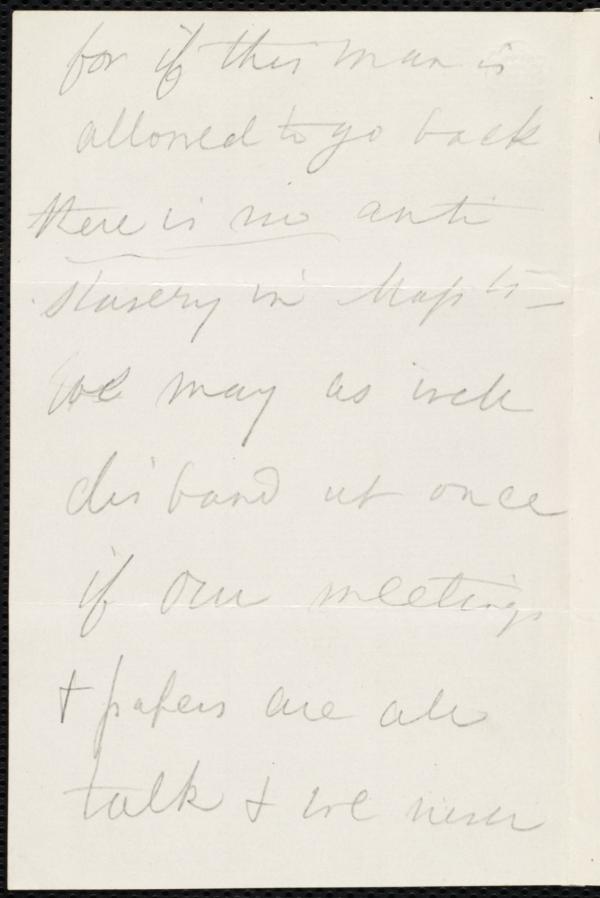 for if this man is
allowed to go back
there is no anti
slavery in Mass ts –
We may as well
disband at once
if our meetings
& papers are all
talk & we never